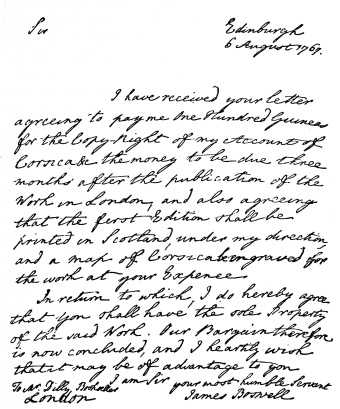 Sir
Edinburgh
6 August 1767.
I have received your letter
agreeing to pay me One Hundred Guineas
for the Copy-Right of my Account of
Corsica &c the money to be due three
months after the publication of the
Work in London, and also agreeing
that the first Edition shall be
printed in Scotland, under my direction,
and a map of Corsica be engraved for
the work at your Expence
In return to which, I do hereby agree
that you shall have the sole Property
of the said Work. Our Bargain therefore
is now concluded, and I heartily wish
that it may be of advantage to you
I am Sir your most humble Servant
To Mr. Dilly, Bookseller
London
James Boswell